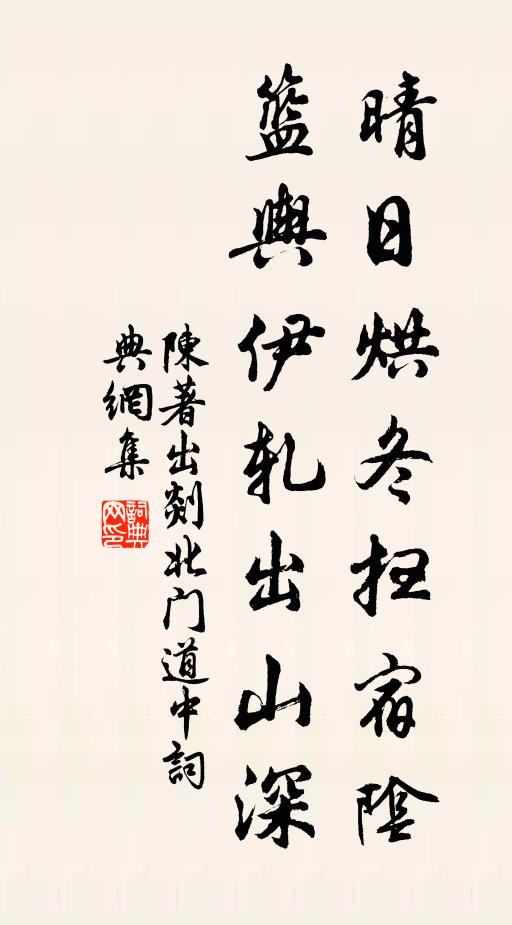 晴日烘冬扫宿陰
籃輿伊軋出山深
陳著出剡北门道中詞
典網集
詞典
网印